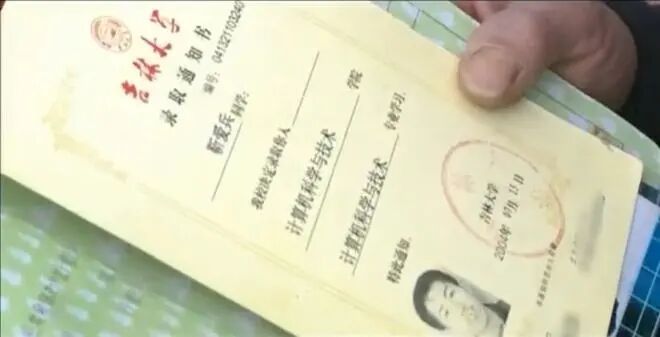 吉林大学
录取通知书
编号：0413211032401
靳爱兵 同学：
我校决定录取你入
计算机科学与技术 学院
计算机科学与技术 专业学习。
特此通知。
吉林大学
2004年 07月 15日